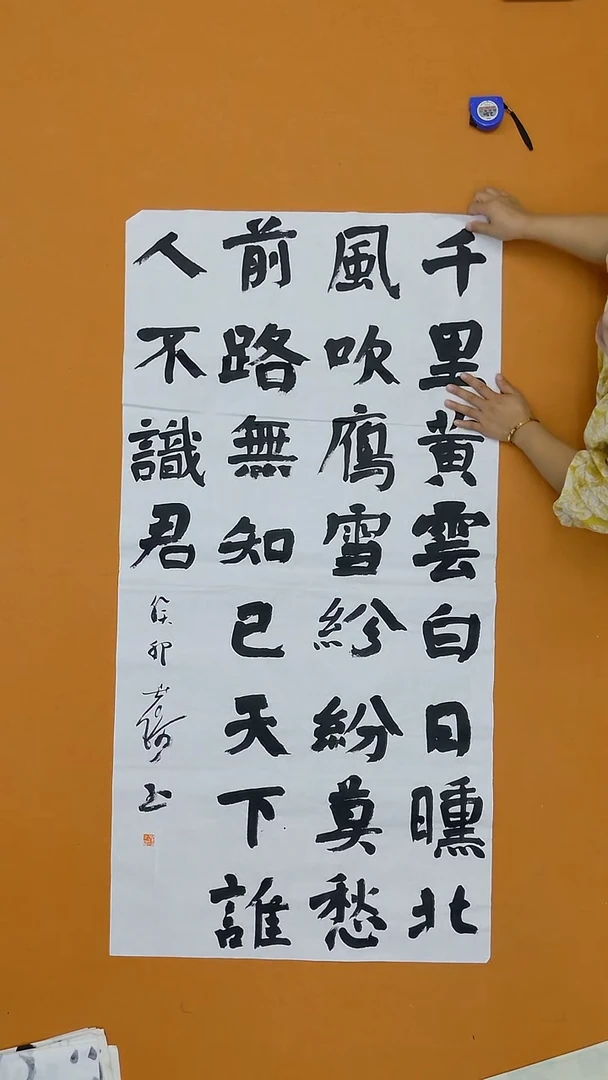 千里黃雲白日曛北
風吹鴈雪紛紛莫愁
前路無知己天下誰
人不識君
癸卯